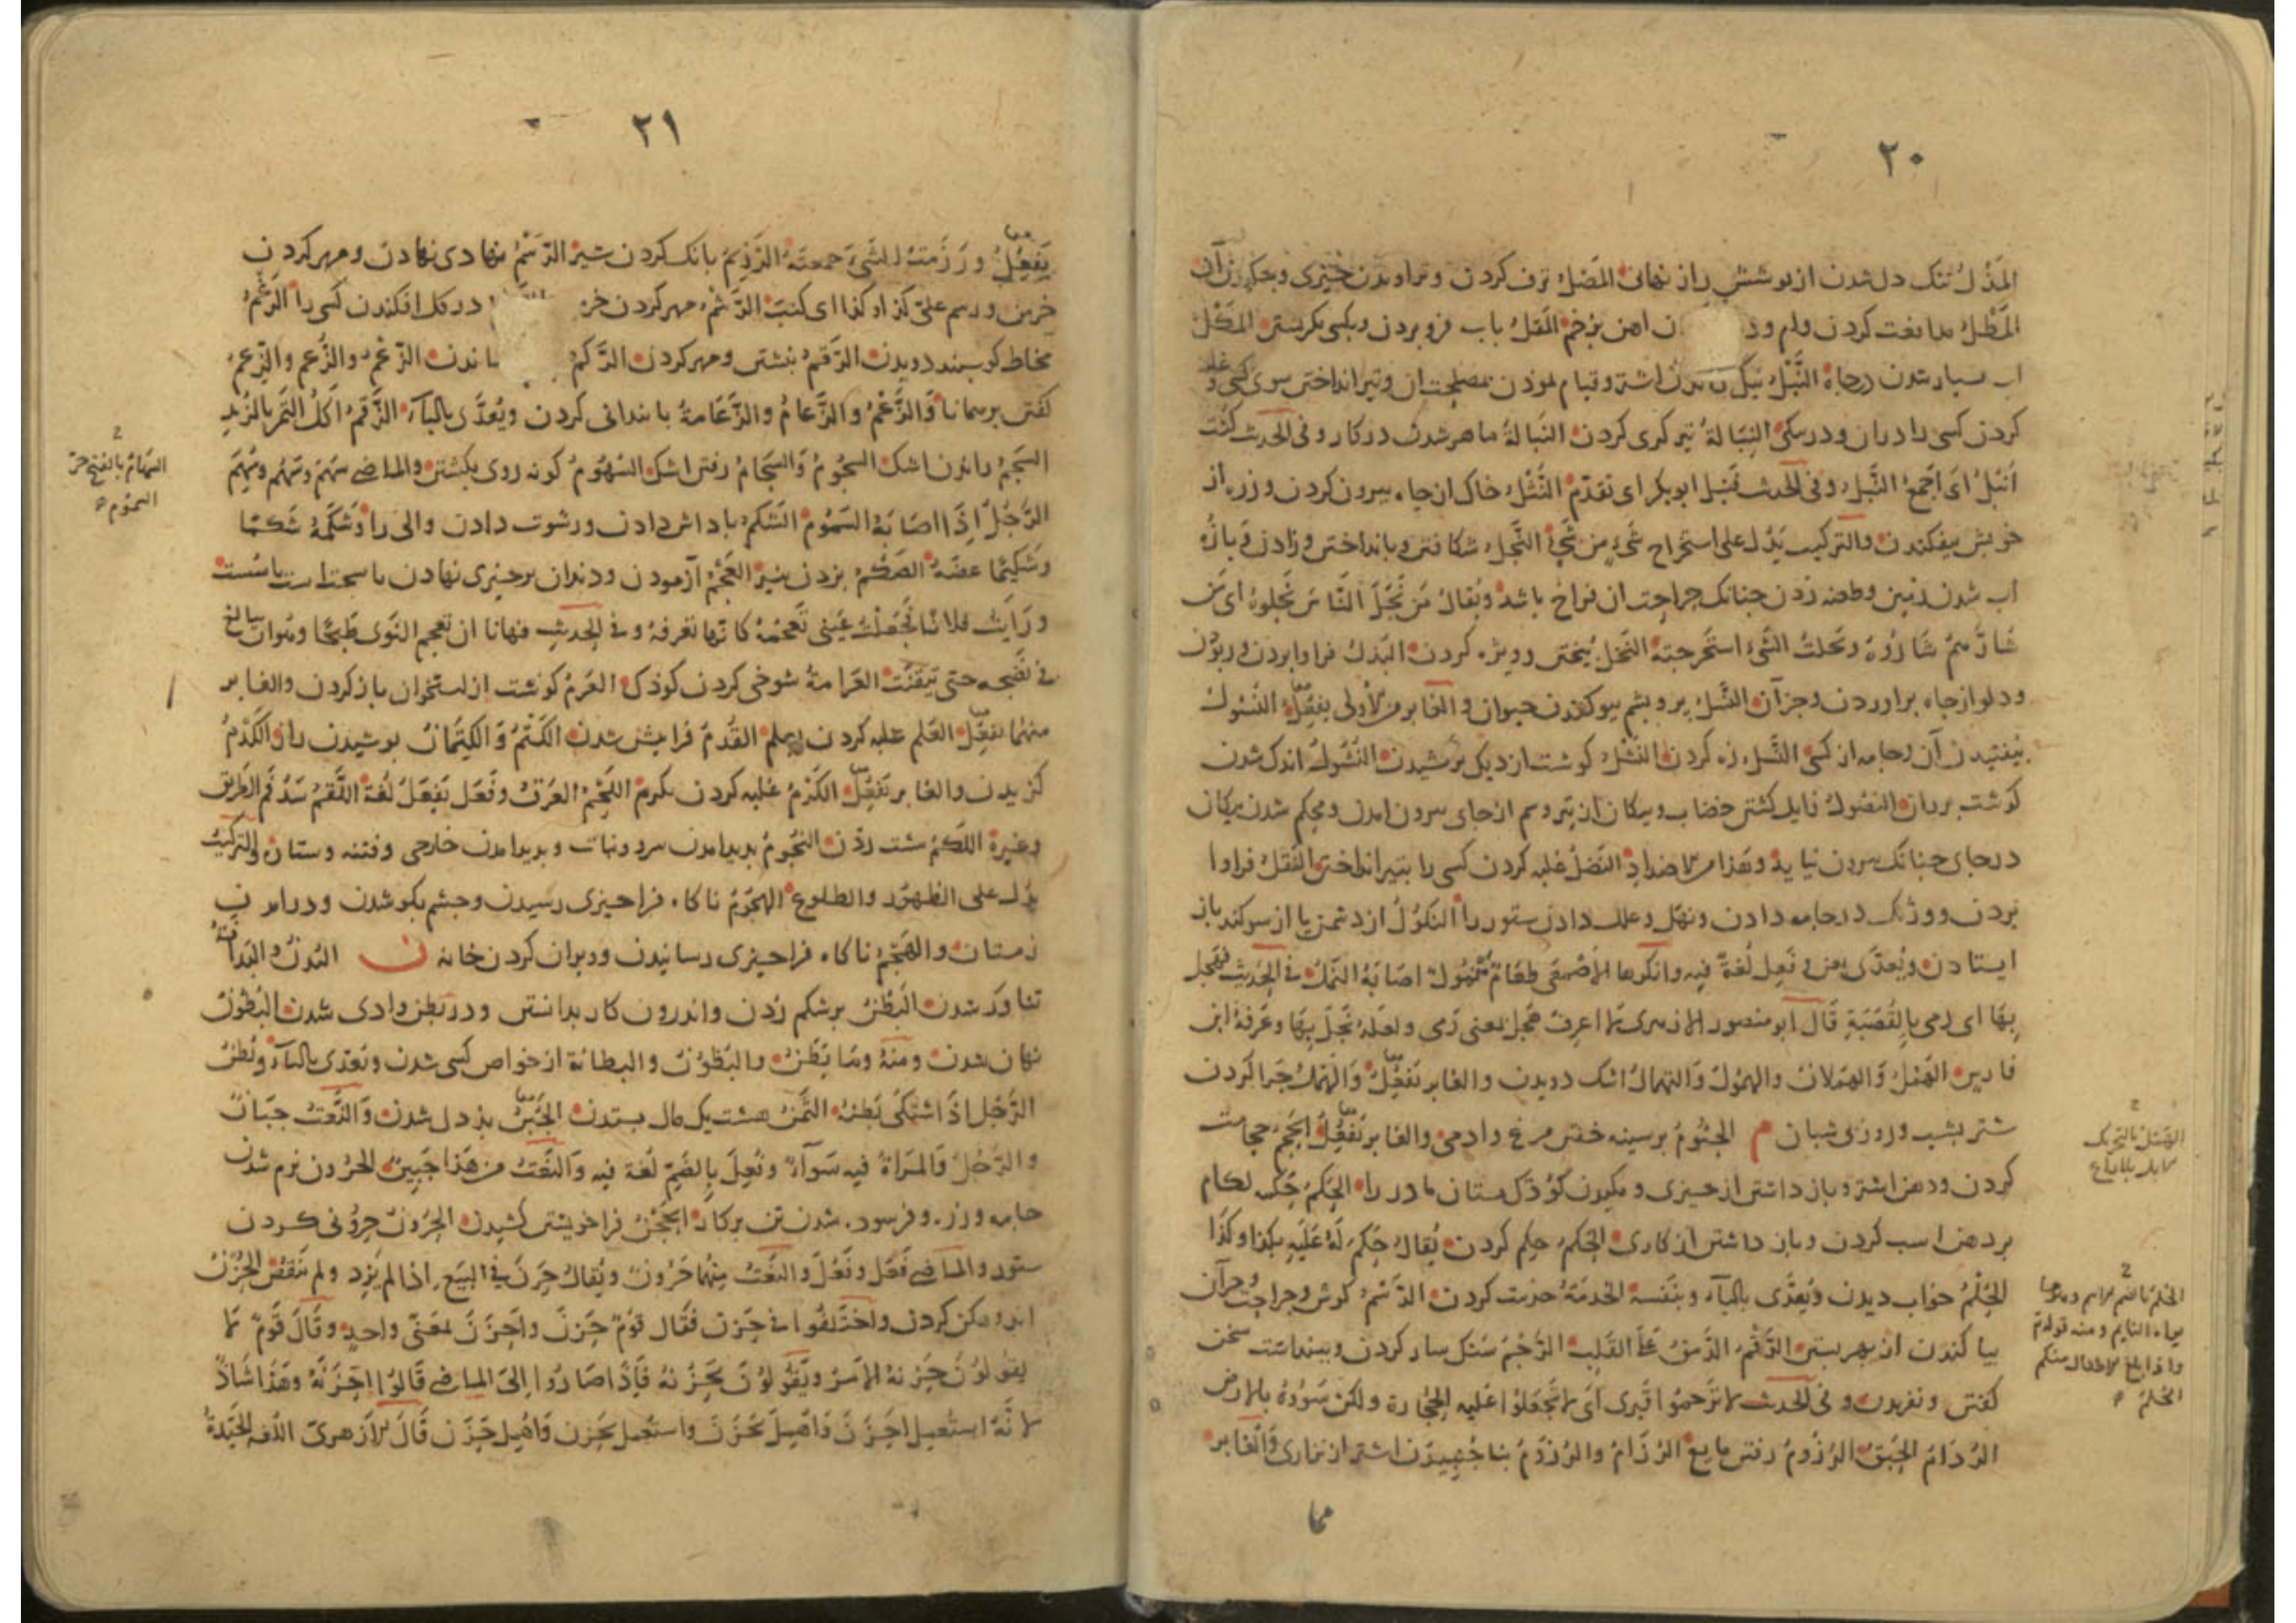 ٢٠
المَذْلُ تنک دل شدن از پوشش راز نهانی المَصْلُ ترف کردن و تراویدن چیزی و جکیدن آن
المَطْلُ مدافعت کردن وام و د ن اهن بزخم المَقْلُ باب فرو بردن و بکسی نکریستن المَکْلُ
اب بسیار شدن درجاه النَّبْلُ نیک اشتر و قیام نمودن بمصلحت ان و تیر انداختن سوی کسی و غلبه
کردن کسی را دران و در سکی النِبَالةُ تیر کری کردن النَبالةُ ماهر شدن در کار و فی الحدیث کنت
اَنبُلُ ای اَجمع النَّبل و فی الحدیث ابو بکر ای تقدّم النَّثْلُ خاک از جاه بیرون کردن و زره از
خویش بیفکندن والترکیب یَدُل علی استخراج شیءٍ من شیءٍ النَّجْلُ شکافتن و بانداختن و زادن و بازه
اب شدن زمین و طعنه زدن جنانک جراحت ان فراخ باشد و یُقالُ مَن نَجَلَ النَّاسَ نَجَلوهُ ای مَن
شَارَّهم شَارُّوهُ و نَخلتُ الشَّیءَ استخرجتهُ النَّخْلُ بیختن و ویژه کردن النَدْلُ فرا وا بردن و ربودن
و دلو از جاه براوردن و جز آن النَّسْلُ پر و پشم بیوکندن حیوان و الغابر من الاولی یفعُلُ النُّسُولُ
بیفتیدن آن و جامه از کسی النَّسْلُ زه کردن النَّشْلُ کوشت از دیک برکشیدن النُّشُولُ اندک شدن
کوشت بر ران النُصُولُ زایل کشتن خضاب و پیکان از تیر و سم از جای بیرون امدن و محکم شدن پیکان
در جای جنانک بیرون نیاید و هَذا من الاضدادِ النَّضْلُ غلبه کردن کسی را بتیر انداختن النَّقْلُ فرا وا
بردن و وژنک در جامه دادن و نعل و علک دادن ستور را النُّکُولُ از دشمن یا از سوکند باز
ایستادن و یُعدَّی بعن و فَعِل لُغةٌ فیه و انکرها الاَصْمَعی طعَامٌ مَنْمُولٌ اصَابَهُ النَّمْلُ فی الحدیث فهجل
بِهَا ای رمی بِالقَصَبَةِ قَالَ ابو منصور الازهری لا اعرفُ هَجَلَ بمعنی رَمی و لعَلَّهُ نَجَلَ بِهَا و عَرَفهُ ابن
فارس الهَمْلُ وَالهَمَلانُ والهُمُولُ وَالتهمالُ اشک دویدن و الغابر تفعِلُ وَالهَمَلُ چَرا کردن
شتر بشب و روز بی شبان م الجُثُومُ بر سینه خفتن مرغ و ادمی و الغابر یَفعِلُ الحَجْمُ حجامت
کردن و دهن اشتر و باز داشتن از جیزی و مکیدن کوذک بستان مادر را الحَکْمُ حَکَمه لکام
بر دهن اسب کردن و باز داشتن از کاری الحُکْمُ حکم کردن یُقالُ حَکم لَهُ عَلَیهِ بکذا و کَذَا
الحُلْمُ خواب دیدن و یُعدَّی بالبآء و بنَفسِهِ الخدمَةُ خدمت کردن الدَّسْمُ کوش و جراحت و جز آن
بیا کندن از بهر بستن الرَّقْمُ علی القَلبِ الرَّجْمُ سنکسار کردن و ببنداشت سخن
کفتن و نفریدن و فی الحدیث لا تَرجموا قَبری ای لا تجعَلُوا عَلَیهِ الحِجَارة و لکن سَوُّوهُ بالارض
الرُدَامُ الحَبْقُ الرُزُومُ الرُّزَامُ و الرُزُومُ بناجهیدن اشتر از نزاری و الغابر
الهَمَلُ بالتحریک
الحُلمُ بالضم
یراه النایم و منه قوله تع
و اذا بلغ الاطفال منکم
الحُلُمَ
٢١
یَفعِلُ و رَزَمْتُ الشَّیءَ جمعتَهُ الرَّزْمُ بانک کردن شیر الرَسْمُ نهادی نهادن و مهر کردن
خرمن و رسم علیّ کذا و کذا ای کتبَ الرَّشْمُ مهر کردن خر در کل افکندن کسی را الرَغْمُ
مخاط کوسبند دویدن الرَّقْمُ بنشتن و مهر کردن الرَّکْمُ ماندن الزَّعْمُ والزُعم والزِعم
کفتن بر کمانی وَالزَّعْمُ والزَّعامُ والزَّعَامةُ بابندانی کردن و یُعدَّی بالبآء الزَّقْمُ اکلُ التمر بالزُبدِ
السَّجْمُ راندن اشک السُجُومُ وَالسِجَامُ رفتن اشک السُهُومُ کونه روی بکشتن و الماضی سَهَمَ و سَهُم و سُهِمَ
الرَّجُلُ اذَا اصَابَهُ السَمُومُ الشَکْمُ باداش دادن و رشوت دادن والی را و شَکَمَهُ شَکمًا
و شَکِیمًا عضَّهُ الصَدْمُ العَجْمُ آزمودن و دندان بر چیزی نهادن تا سخت است یا سست
و رَایتُ فلانًا فجَعَلَتْ عَینی تَعجمُهُ کانّها تعرفهُ و فی الحدیثِ نهانا ان نعجم النَوَی طَبخًا و هو ان یبالغ
فی نضجه حتی یتفتّت العَرَامةُ شوخی کردن کوذک العَرْمُ کوشت از استخوان باز کردن و الغابر
منهما یفعِلُ العَلْم غلبه کردن بعلم القَدْمُ فرا پیش شدن الکَتْمُ وَ الکِتْمَانُ پوشیدن راز الکَدْمُ
کزیدن و الغابر یَفعِلُ الکَرْمُ غلبه کردن بکرم اللَّجْمُ العَرَقُ و فَعَل یَفعَلُ لُغةٌ اللَّقْمُ سَدُّ فَمِ الطریق
و غیره اللَکْمُ مشت زدن النُجُومُ بدید امدن سرو و نبات و بدید امدن خارجی و فتنه و ستان والترکیبُ
یدُل علی الظهُور والطلوع الهجُومُ ناکاه فرا جیزی رسیدن و جشم بکو شدن و در امدن
زمستان والهَجْمُ ناکاه فرا جیزی رسانیدن و ویران کردن خانه ن البُدنُ و البَدَانَةُ
تناور شدن البَطْنُ بر شکم زدن و اندرون کار بدانستن و در بطن وادی شدن البُطُونُ
نهان شدن و منهُ وَمَا بَطَنَ والبُطُونُ و البطانة از خواص کسی شدن و یُعدّی بالبآء و بُطِنَ
الرَّجُل اذَا اشتکَی بَطنَهُ الثَّمْنُ هشت یک مال بستدن الجُبْنُ بذ دل شدن وَالنَّعتُ جَبَانٌ
و الرَّجُلُ وَالمَرْاَةُ فیهِ سَوآءٌ و فَعُلَ بِالضمّ لُغة فیه وَالنَّعتُ مِن هَذا جَبِینٌ الجُرُون نرم شدن
جامه و زره و فرسوده شدن تن بر کار الحَجْنُ فرا خویشتن کشیدن الحُرُونُ حرونی کردن
ستور و الماضی فَعَل و فَعُلَ و النَّعْتُ مِنهُما حَرُونٌ و یُقالُ حَرَنَ فی البَیعِ اذا لم یَزِد و لم یَنقُصْ الحُزْنُ
اندوهکن کردن و اختَلَفُوا فی حَزن فقَال قَومٌ حَزَنَ و اَحْزَنَ بمعنًی واحدٍ و قَالَ قَومٌ لا
یَقولوُنَ حَزنَهُ الاَمرُ و یَقُولوُنَ یَحزُنهُ فَاِذَا صَارُوا اِلَی الماضی قَالوُا اَحْزَنَهُ و هَذَا شَاذٌّ
لانَّهُ استُعمِل اَحْزَنَ وَ اُهمِلَ یُحْزِنُ و استُعمِل یَحْزُن وَ اُهمِلَ حَزَن قَالَ الاَزهَرِیّ اللّغة الجَیِّدةُ
السَّهَامُ بالفتح حرّ
السموم